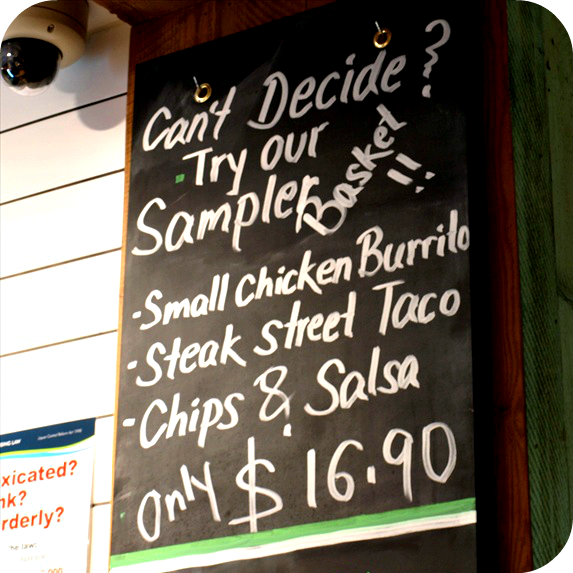 Can't Decide?
Try our
Sampler Basket!!
-Small Chicken Burrito
-Steak street Taco
-Chips & Salsa
Only $16.90
xicated?
nk?
rderly?
the law: